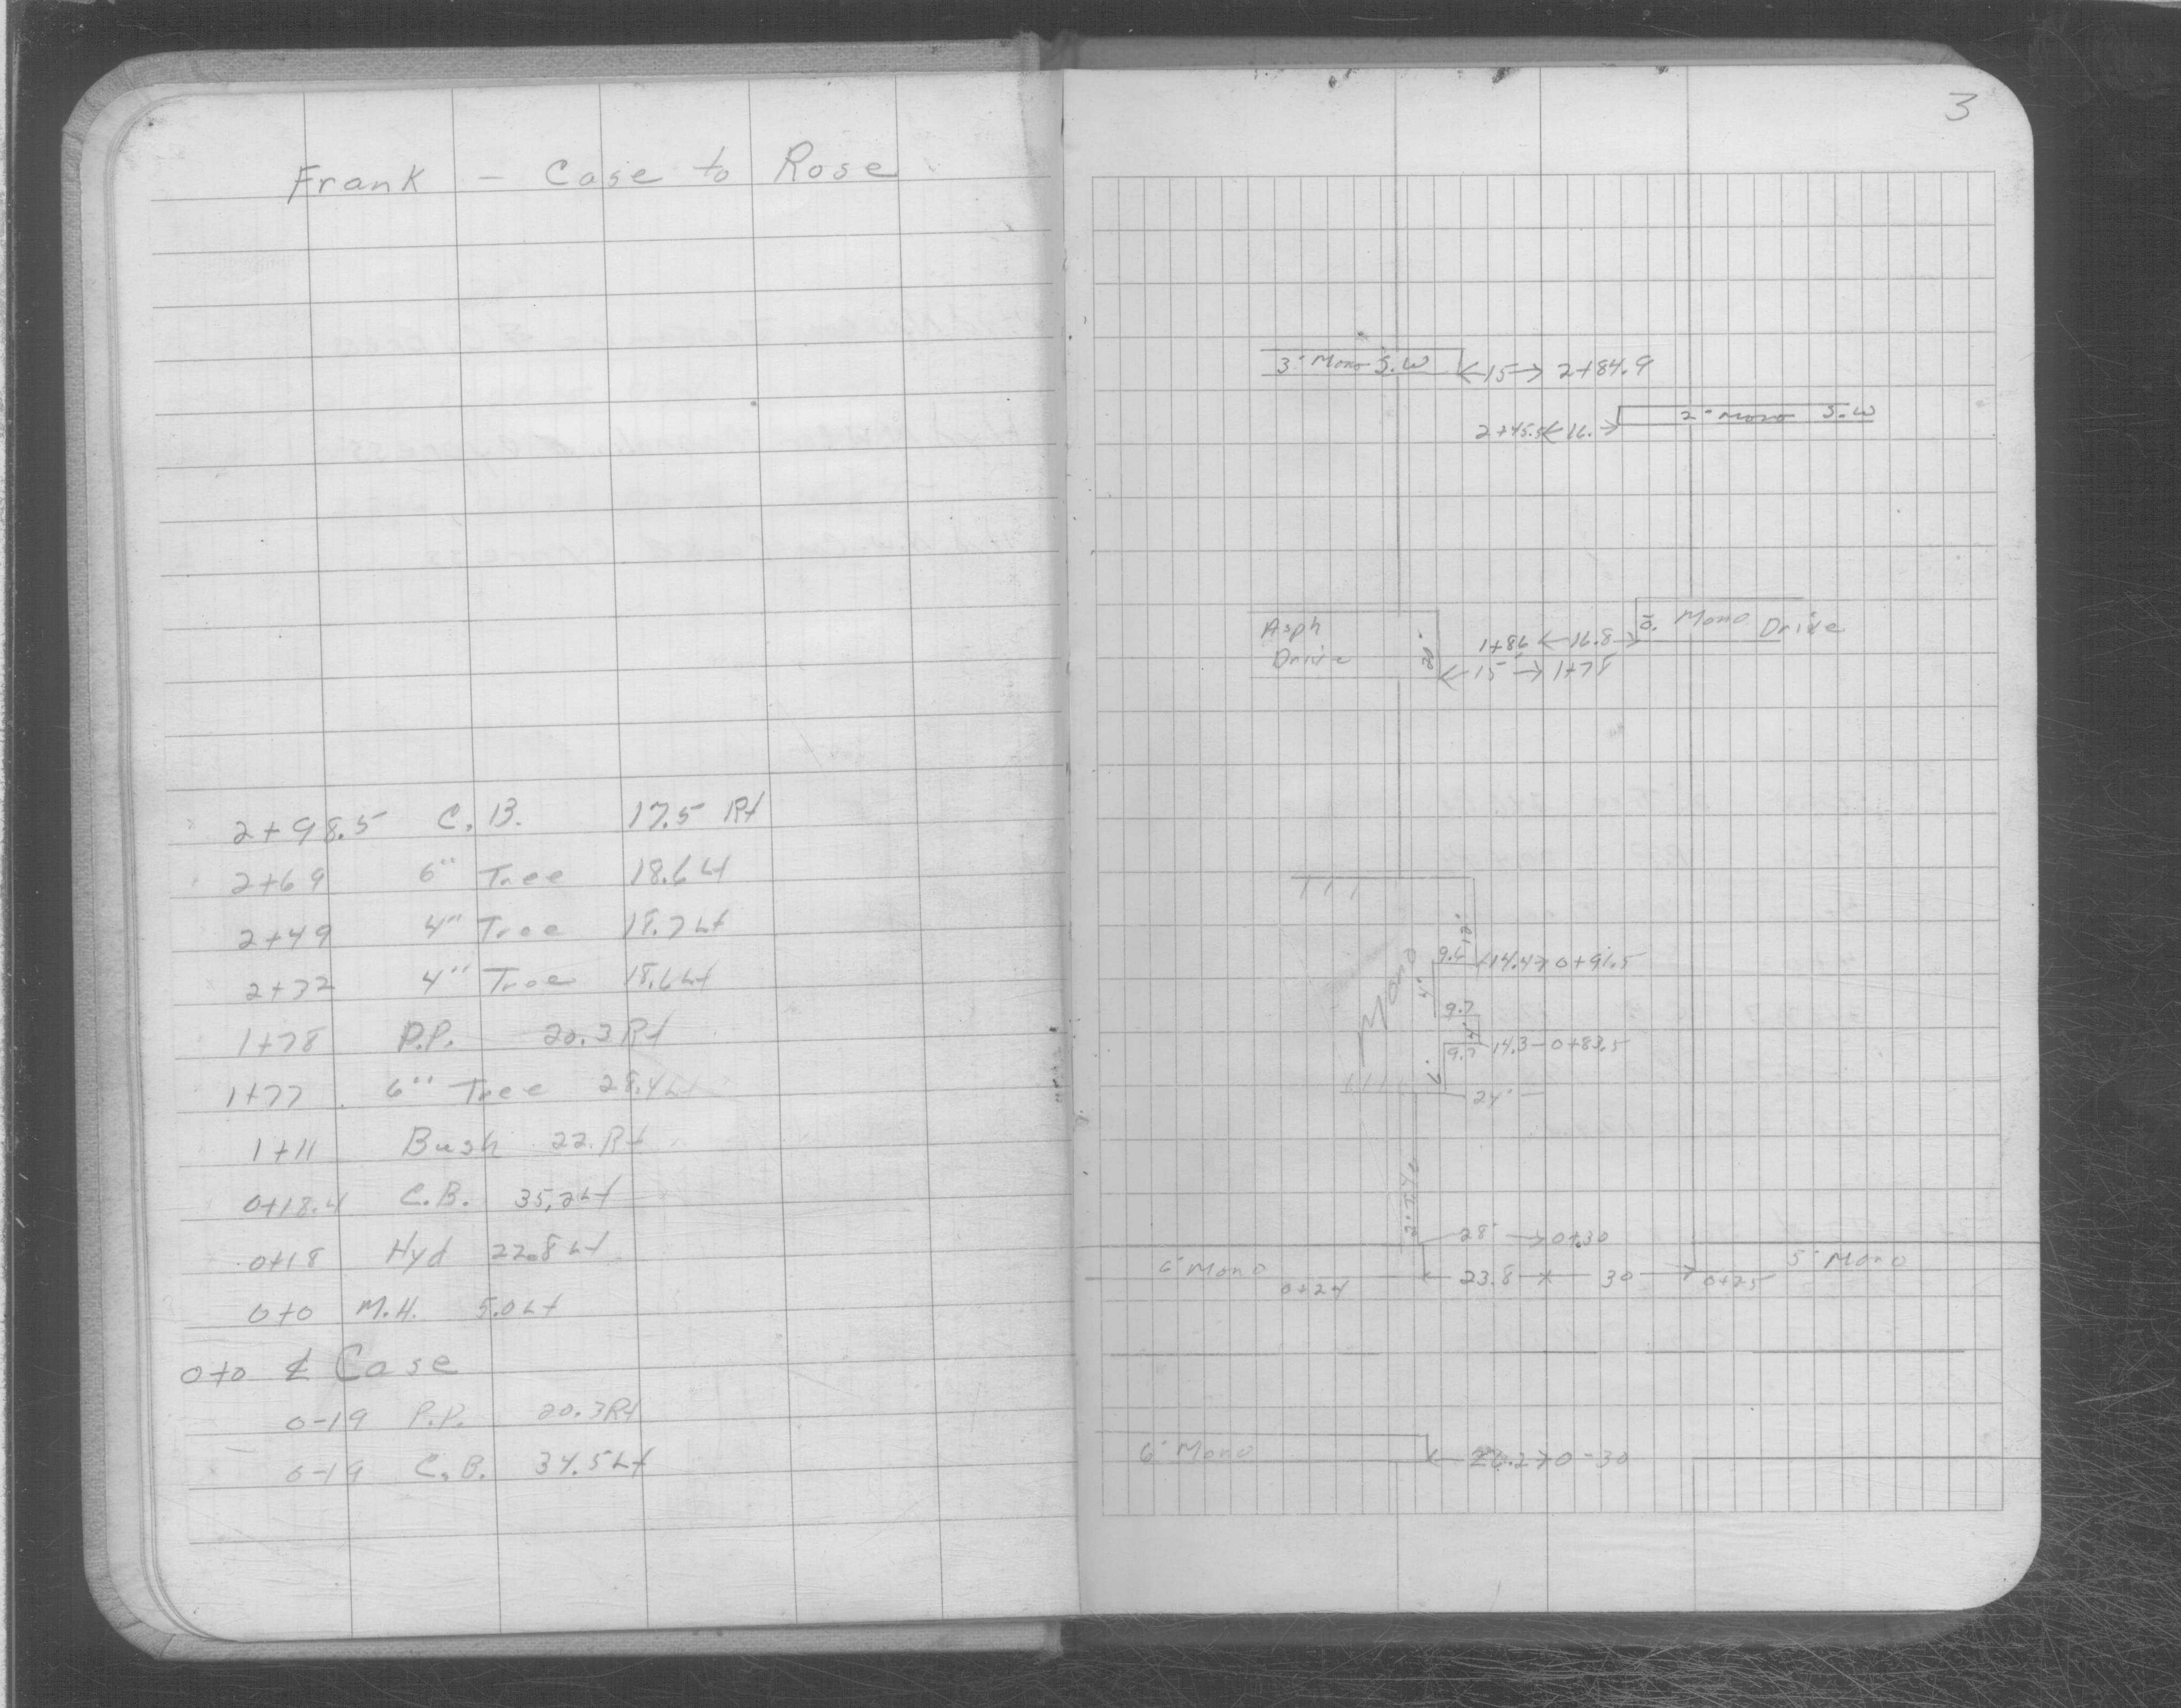 Frank - Case to Rose
2+98.5 C.B. 17.5 Rt
2+69 6" Tree 18.6 Lt
2+49 4" Tree 18.7 Lt
2+32 4" Tree 18.6 Lt
1+78 P.P. 20.3 Rt
1+77 6" Tree 28.4 Lt
1+11 Bush 22. Rt
0+18.4 C.B. 35.2 Lt
0+18 Hyd 22.8 Lt
0+0 M.H. 5.0 Lt
0+0 ℄ Case
0-19 P.P. 20.3 Rt
0-19 C.B. 34.5 Lt
3
3' Mono S.W 15 2+84.9
2+45.5 16. 2' Mono S.W
Asph Drive 20'
1+86 16.8 Mono Drive
15 1+78
Mono
12'
9.6 14.4 0+91.5
4'
9.7
4'
9.7 14.3 - 0+83.5
24'
28' 0+30
6' Mono 0+24 23.8 30 0+25 5' Mono
6' Mono 26.2 0-30